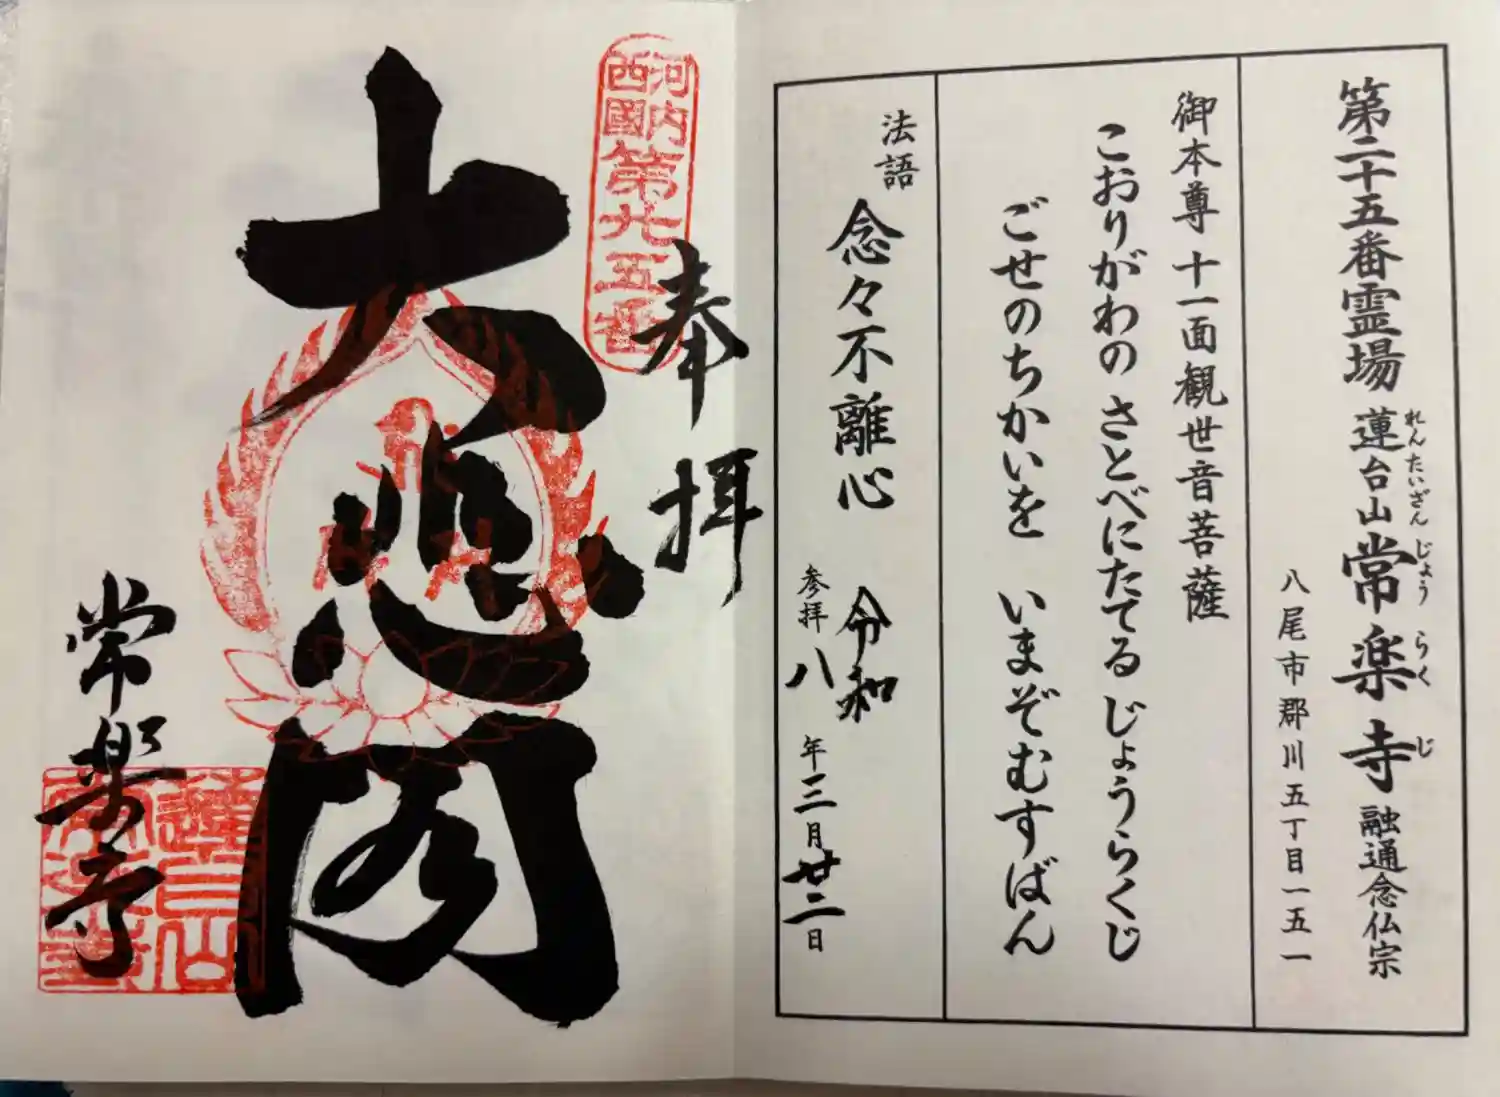 第二十五番霊場 蓮台山常楽寺 融通念仏宗
れんたいざん じょうらくじ
八尾市郡川五丁目一五一
御本尊 十一面観世音菩薩
こおりがわの さとべにたてる じょうらくじ
ごせのちかいを いまぞむすばん
法語 念々不離心
令和
参拝 八年三月廿二日
河内
西國
第廿五番
奉拝
大悲閣
常楽寺